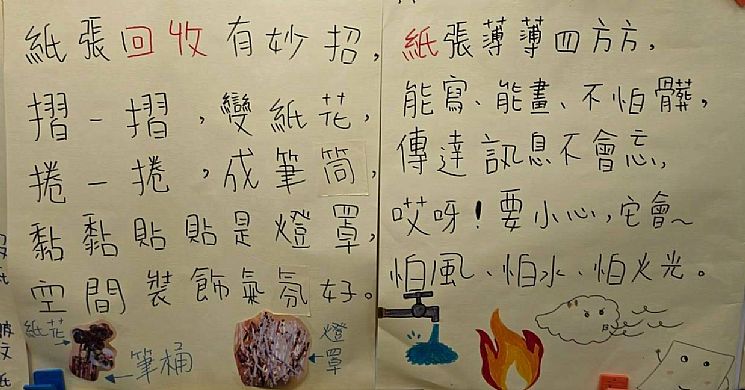 紙張回收有妙招，
摺一摺，變紙花，
捲一捲，成筆筒，
黏黏貼貼是燈罩，
空間裝飾氣氛好。
紙花
筆桶
燈罩
紙張薄薄四方方，
能寫、能畫、不怕髒，
傳達訊息不會忘，
哎呀！要小心，它會~
怕風、怕水、怕火光。